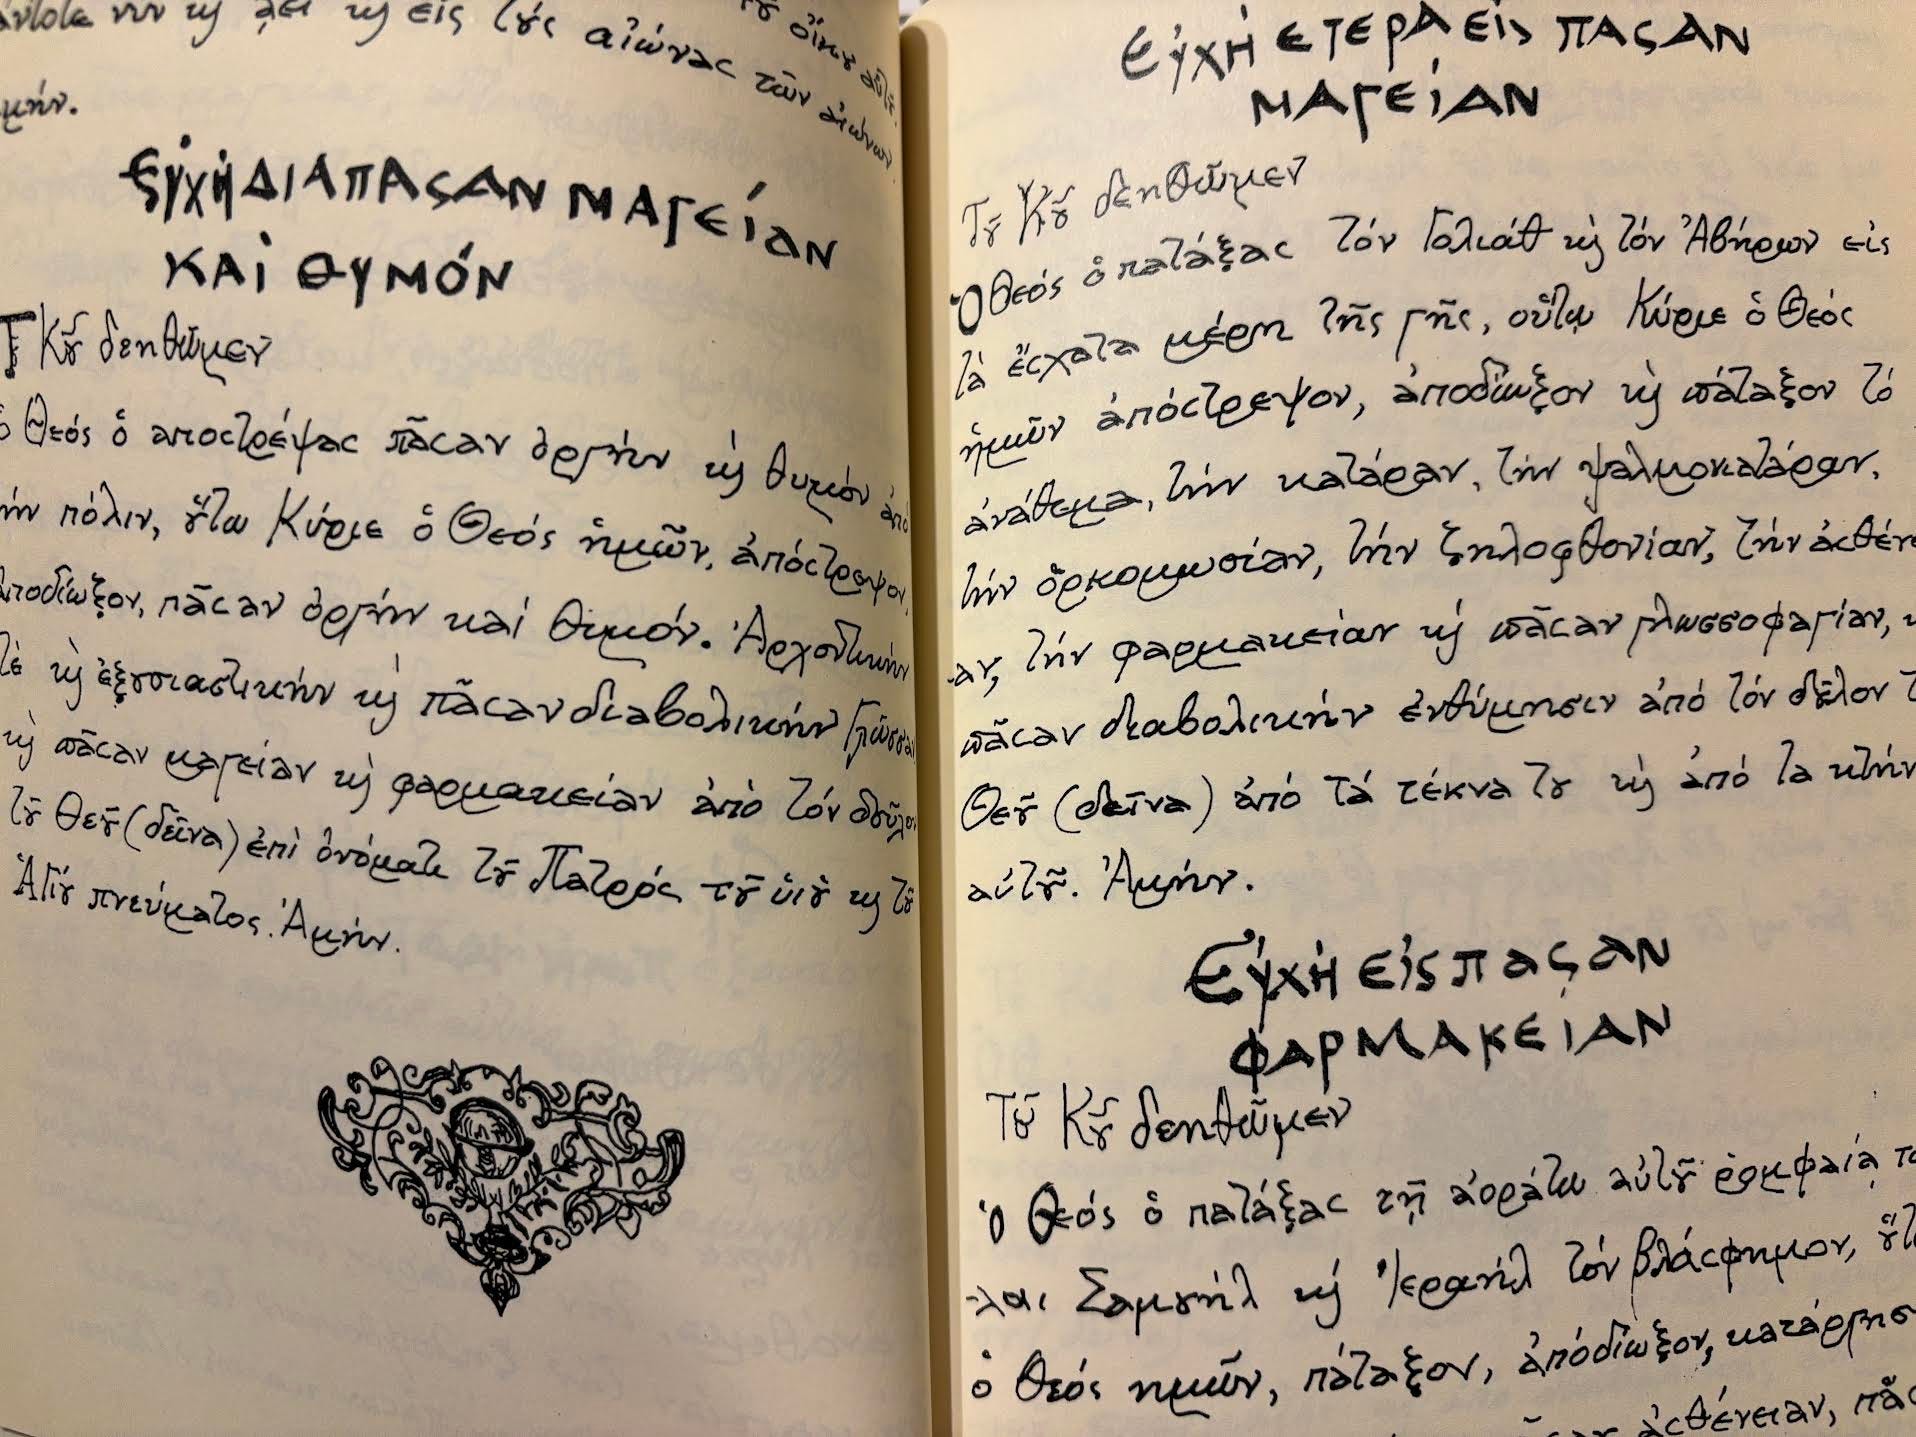 νῦν κ̀ ἀεὶ κ̀ εἰς τοὺς αἰῶνας τῶν αἰώνων
Ἀμήν.
ΕΥ̓ΧΉ ΔΙΑ ΠΑςΑΝ ΜΑΓΕΊΑΝ
ΚΑΙ ΘΥΜΌΝ
Τȣ͂ Κȣ͂ δεηθῶμεν
ὁ Θεός ὁ αποστρέψας πᾶσαν ὀργήν κ̀ θυμόν ἀπό
ήν πόλιν, ȣ̔́τω Κύριε ὁ Θεός ἡμῶν, ἀπόστρεψον,
ἀποδίωξον, πᾶσαν ὀργήν καί θυμόν. Ἀρχοντικήν
τὲ κ̀ ἐξȣσιαστικήν κ̀ πᾶσαν διαβολικήν γλῶσσαν
κ̀ πᾶσαν μαγείαν κ̀ φαρμακείαν ἀπὸ τόν δοῦλον
τȣ͂ Θεȣ͂ (δεῖνα) ἐπὶ ὀνόματι τȣ͂ Πατρός τȣ͂ ὑιȣ͂ κ̀ τȣ͂
Ἁγίȣ πνεύματος. Ἀμήν.
ΕΥ̓ΧΉ ΕΤΕΡΑ ΕΙς ΠΑςΑΝ
ΜΑΓΕΊΑΝ
Τȣ͂ Κȣ͂ δεηθῶμεν
Ὁ Θεός ὁ πατάξας τόν Γολιάθ κ̀ τόν Ἀβήρων εἰς
τὰ ἔσχατα μέρη τῆς γῆς, οὕτω Κύριε ὁ Θεός
ἡμῶν ἀπόστρεψον, ἀποδίωξον κ̀ πάταξον τό
ἀνάθεμα, τήν κατάραν, τήν ψαλμοκατάραν,
τήν ὁρκομωσίαν, τήν ζηλοφθονίαν, τήν ἀσθένει
αν, τήν φαρμακείαν κ̀ πᾶσαν γλωσσοφαγίαν, κ̀
πᾶσαν διαβολικήν ἐνθύμησιν ἀπό τόν δȣ͂λον τ
Θεȣ͂ (δεῖνα) ἀπό τά τέκνα τȣ κ̀ ἀπό τα κτήν
αὐτȣ͂. Ἀμήν.
ΕΥ̓ΧΉ ΕἸς ΠΑςΑΝ
ΦΑΡΜΑΚΕΊΑΝ
Τȣ͂ Κȣ͂ δεηθῶμεν
ὁ Θεός ὁ πατάξας τῇ ἀοράτω αὐτȣ͂ ρομφαία το
λαι Σαμȣήλ κ̀ Ἱερανήλ τόν βλάσφημον, ȣ̔́τ
ὁ Θεός ημῶν, πάταξον, ἀπόδίωξον, κατάργησ
ἀσθένειαν, πᾶσ